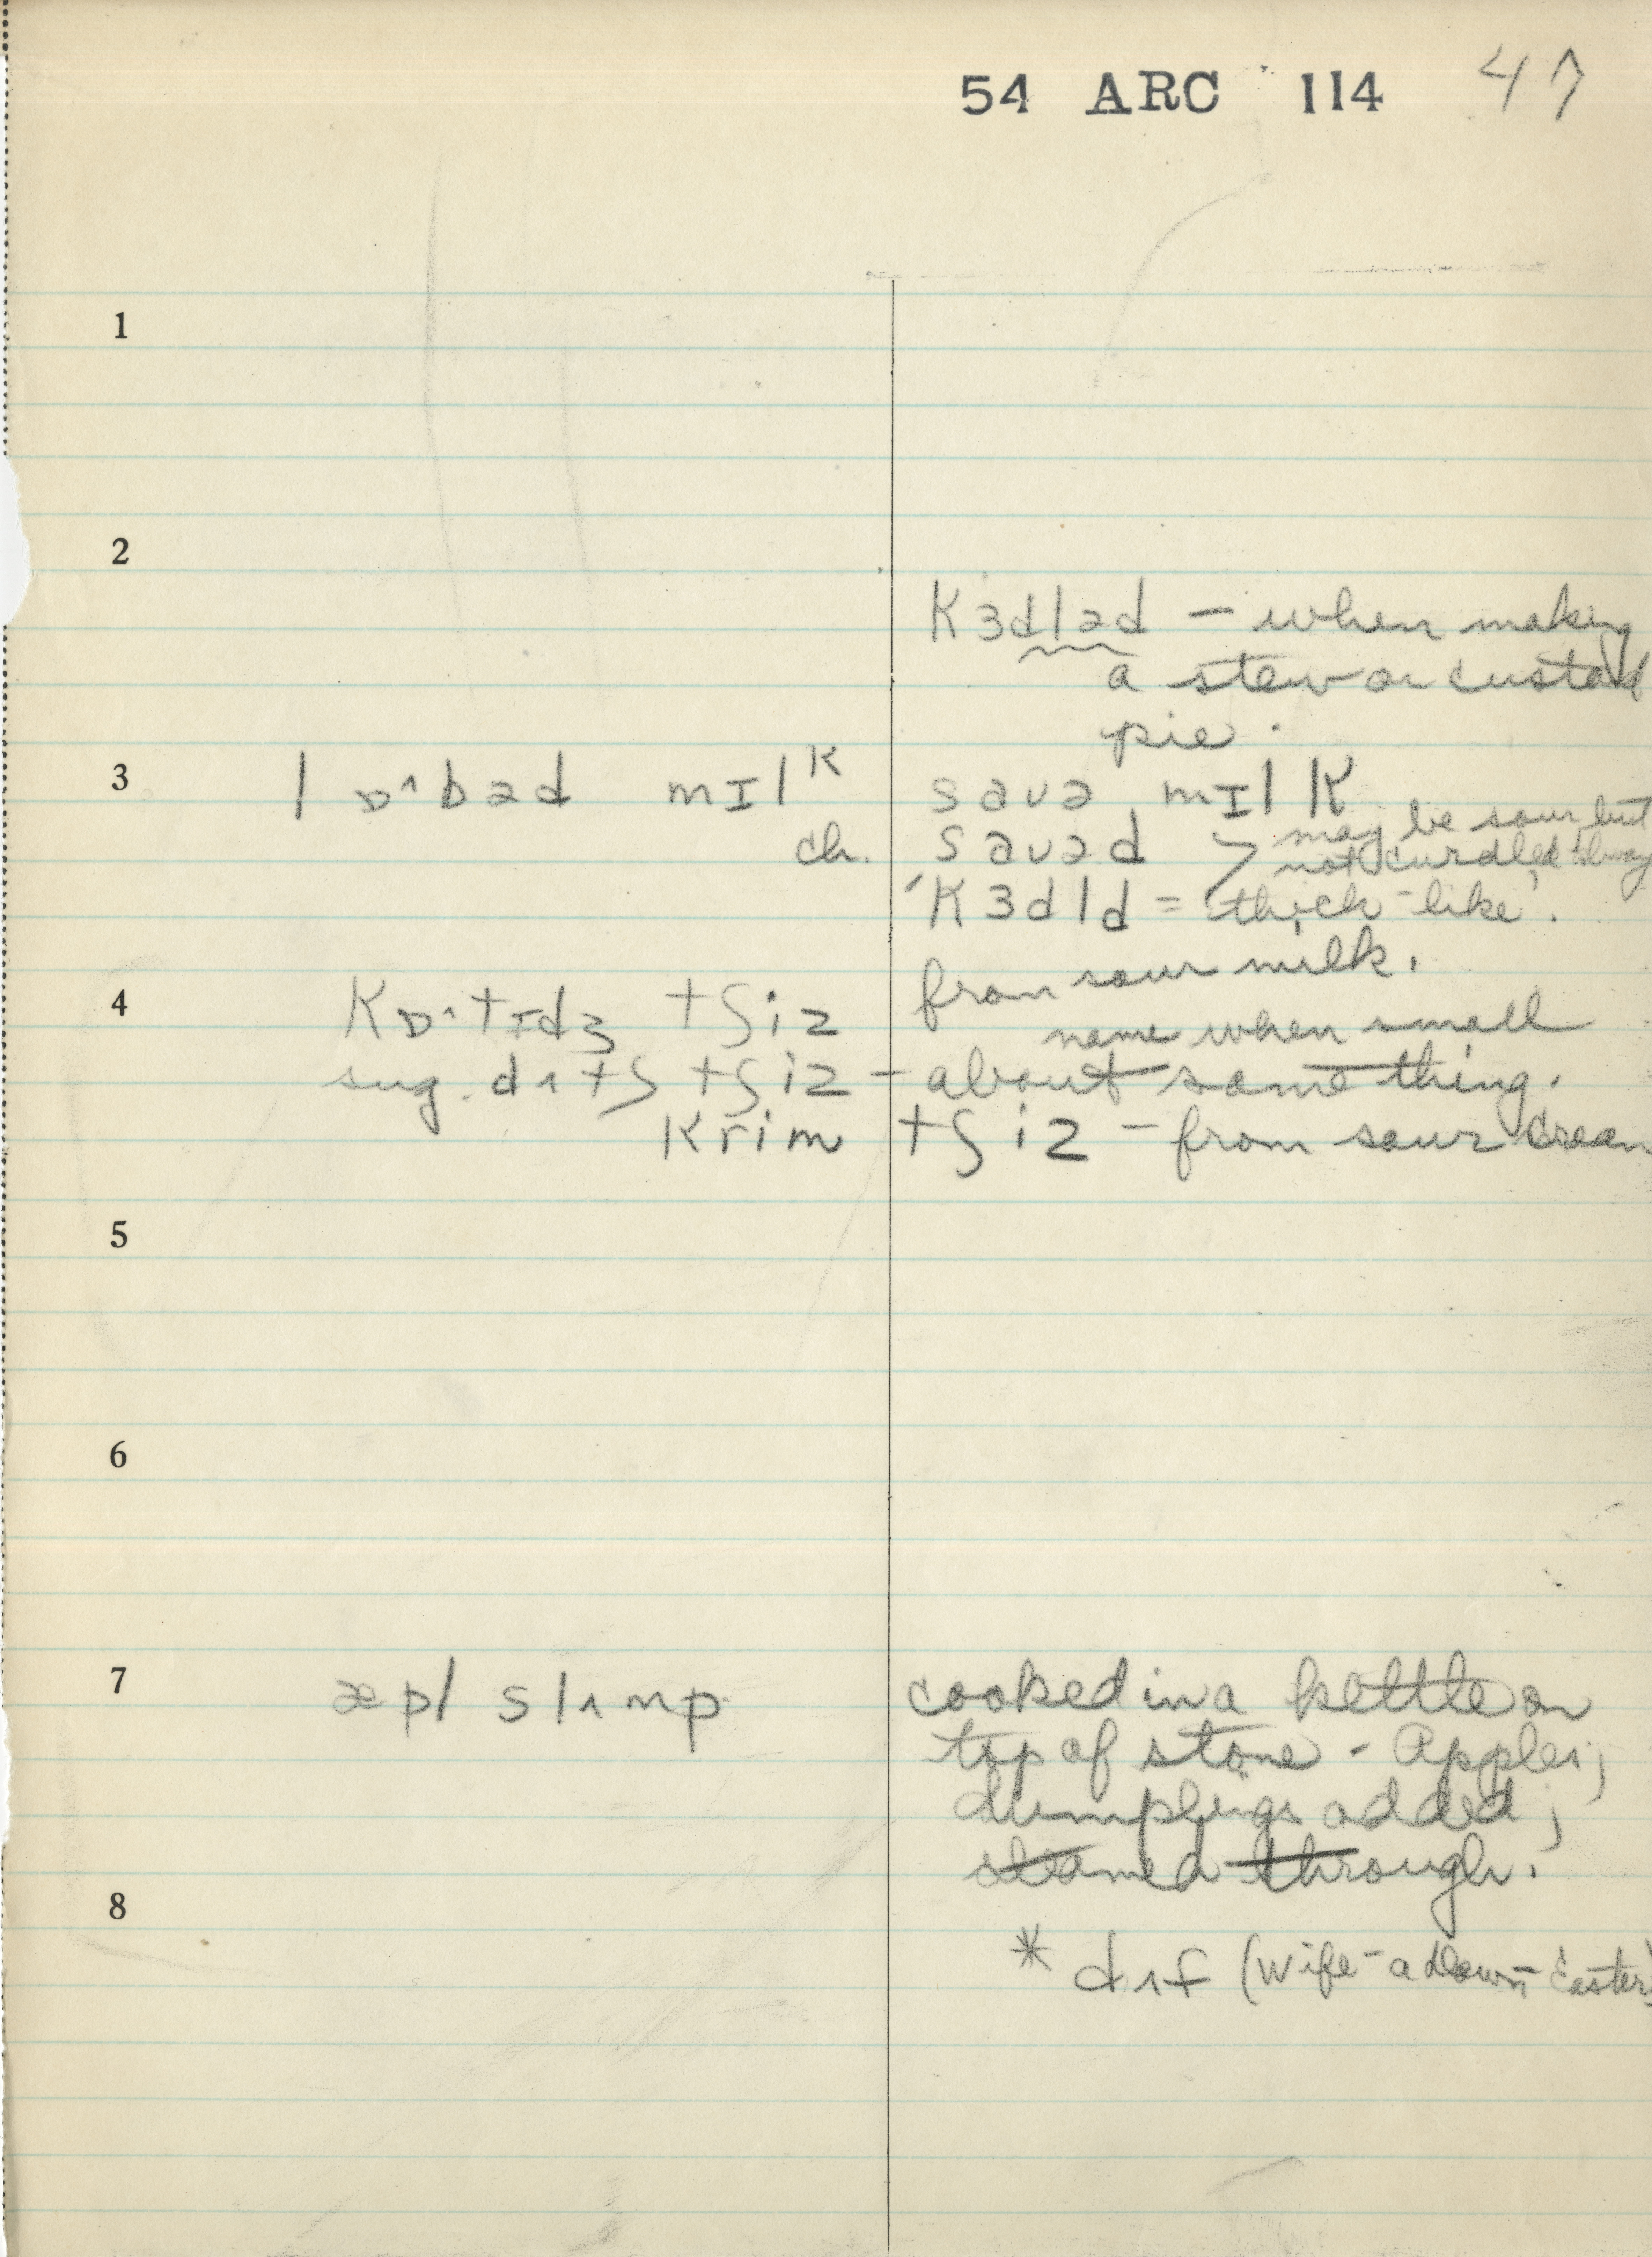 54 ARC 114 47
1
2
kɜdləd – when making
a stew or custard
pie.
3 lɒ^bəd mɪlᴷ savə mɪlk
ch. savəd > may be sour but
not curdled always
'kɜdld = thick-like'.
from sour milk.
4 kɒ^tɪdʒ tʃiz name when small
sug. dʌtʃ tʃiz – about same thing.
krim tʃiz – from sour cream
5
6
7 æpl slʌmp cooked in a kettle on
top of stove - Apples;
dumplings added;
steamed through.
8
* dʌf (wife - a down Easter)